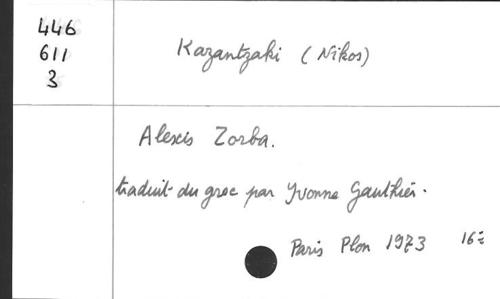 446
611
3
Kazantzaki (Nikos)
Alexis Zorba.
traduit du grec par Yvonne Gauthier.
Paris Plon 1973 16º